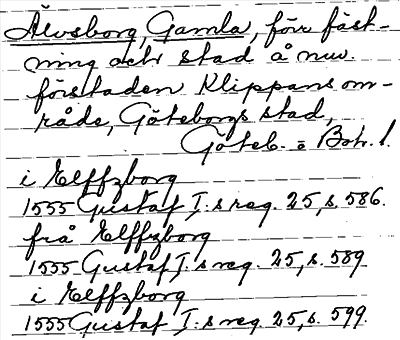 Älvsborg, Gamla, förr fäst-
ning och stad å nuv.
förstaden Klippans om-
råde, Göteborgs stad,
Göteb. o Boh. l.
i Elffzborg
1555 Gustaf I:s reg. 25, s. 586.
från Elffzborg
1555 Gustaf I:s reg. 25, s. 589
i Elffzborg
1555 Gustaf I:s reg. 25, s. 599.